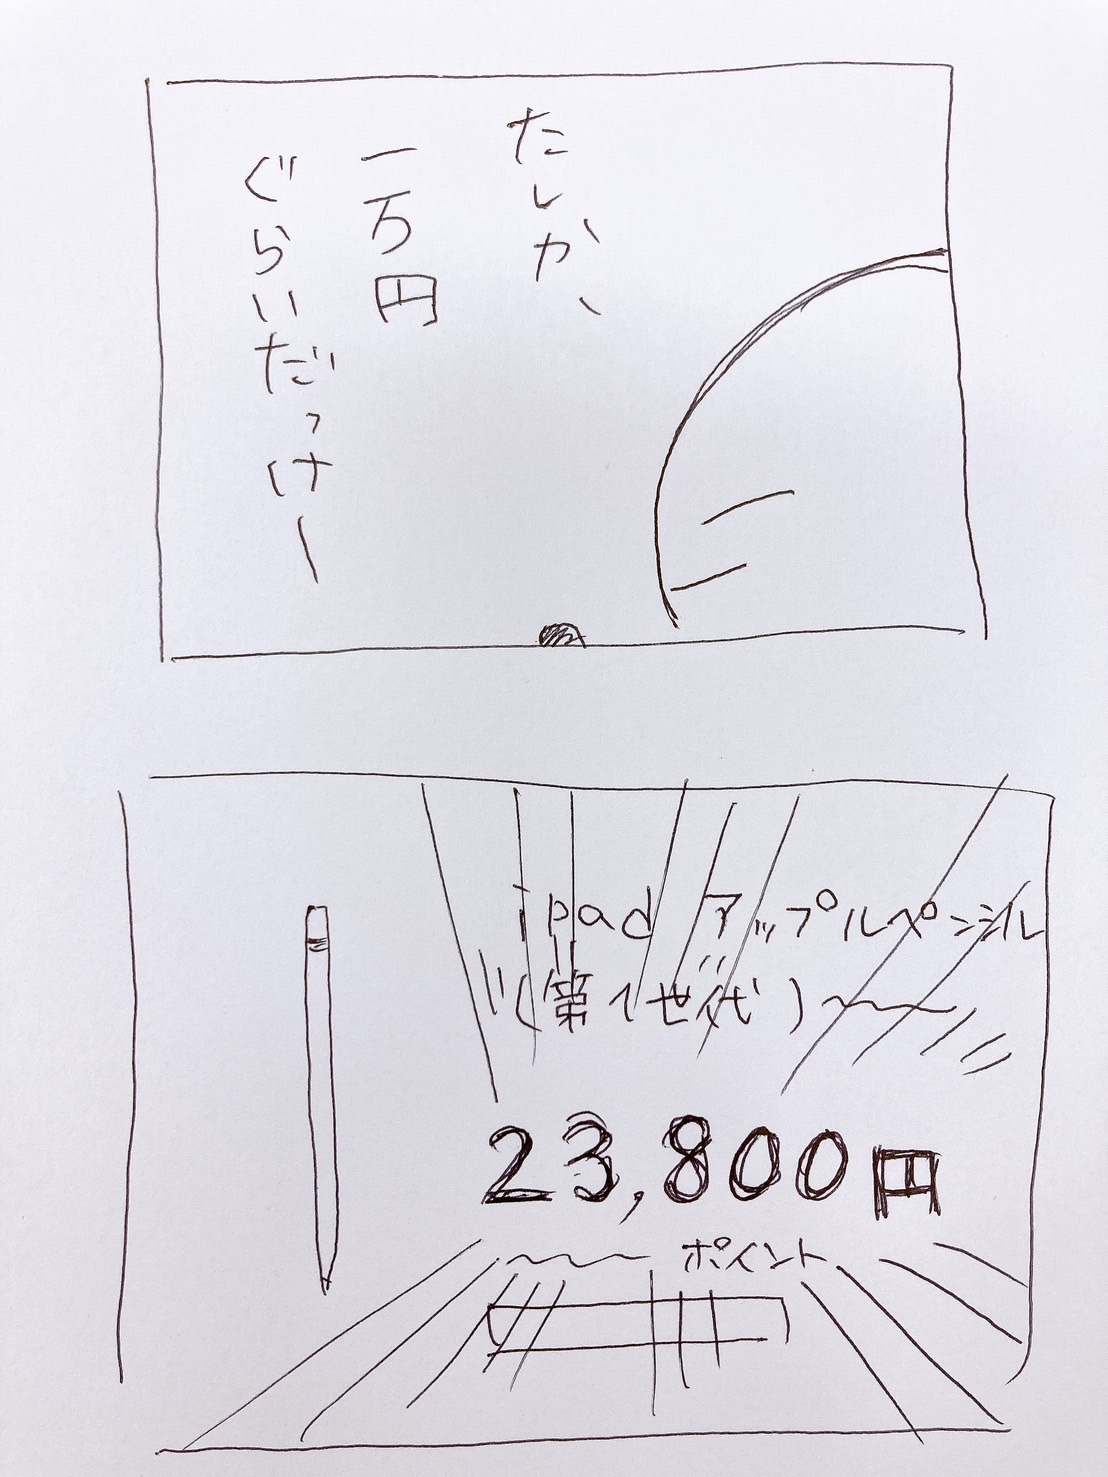 たしか、
一万円
ぐらいだっけー
ipad アップルペンシル
(第1世代)
23,800円
ポイント